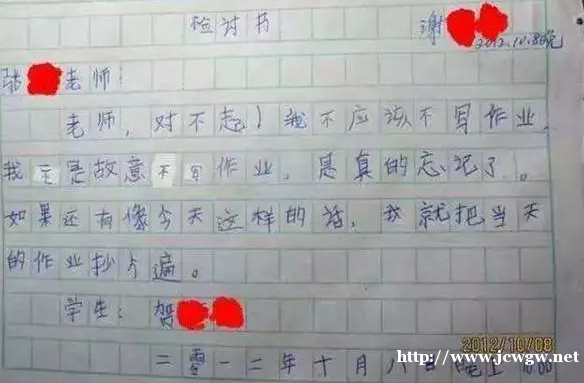 检讨书 谢
2012.10.8晚
老师:
老师,对不起!我不应该不写作业,
我是故意不写作业。是真的忘记了。
如果还有像今天这样的话,我就把当天
的作业抄遍。
学生: 贺
2012/10/08
二零一二年十月八日晚上 10:00
http://www.jcwgw.net/